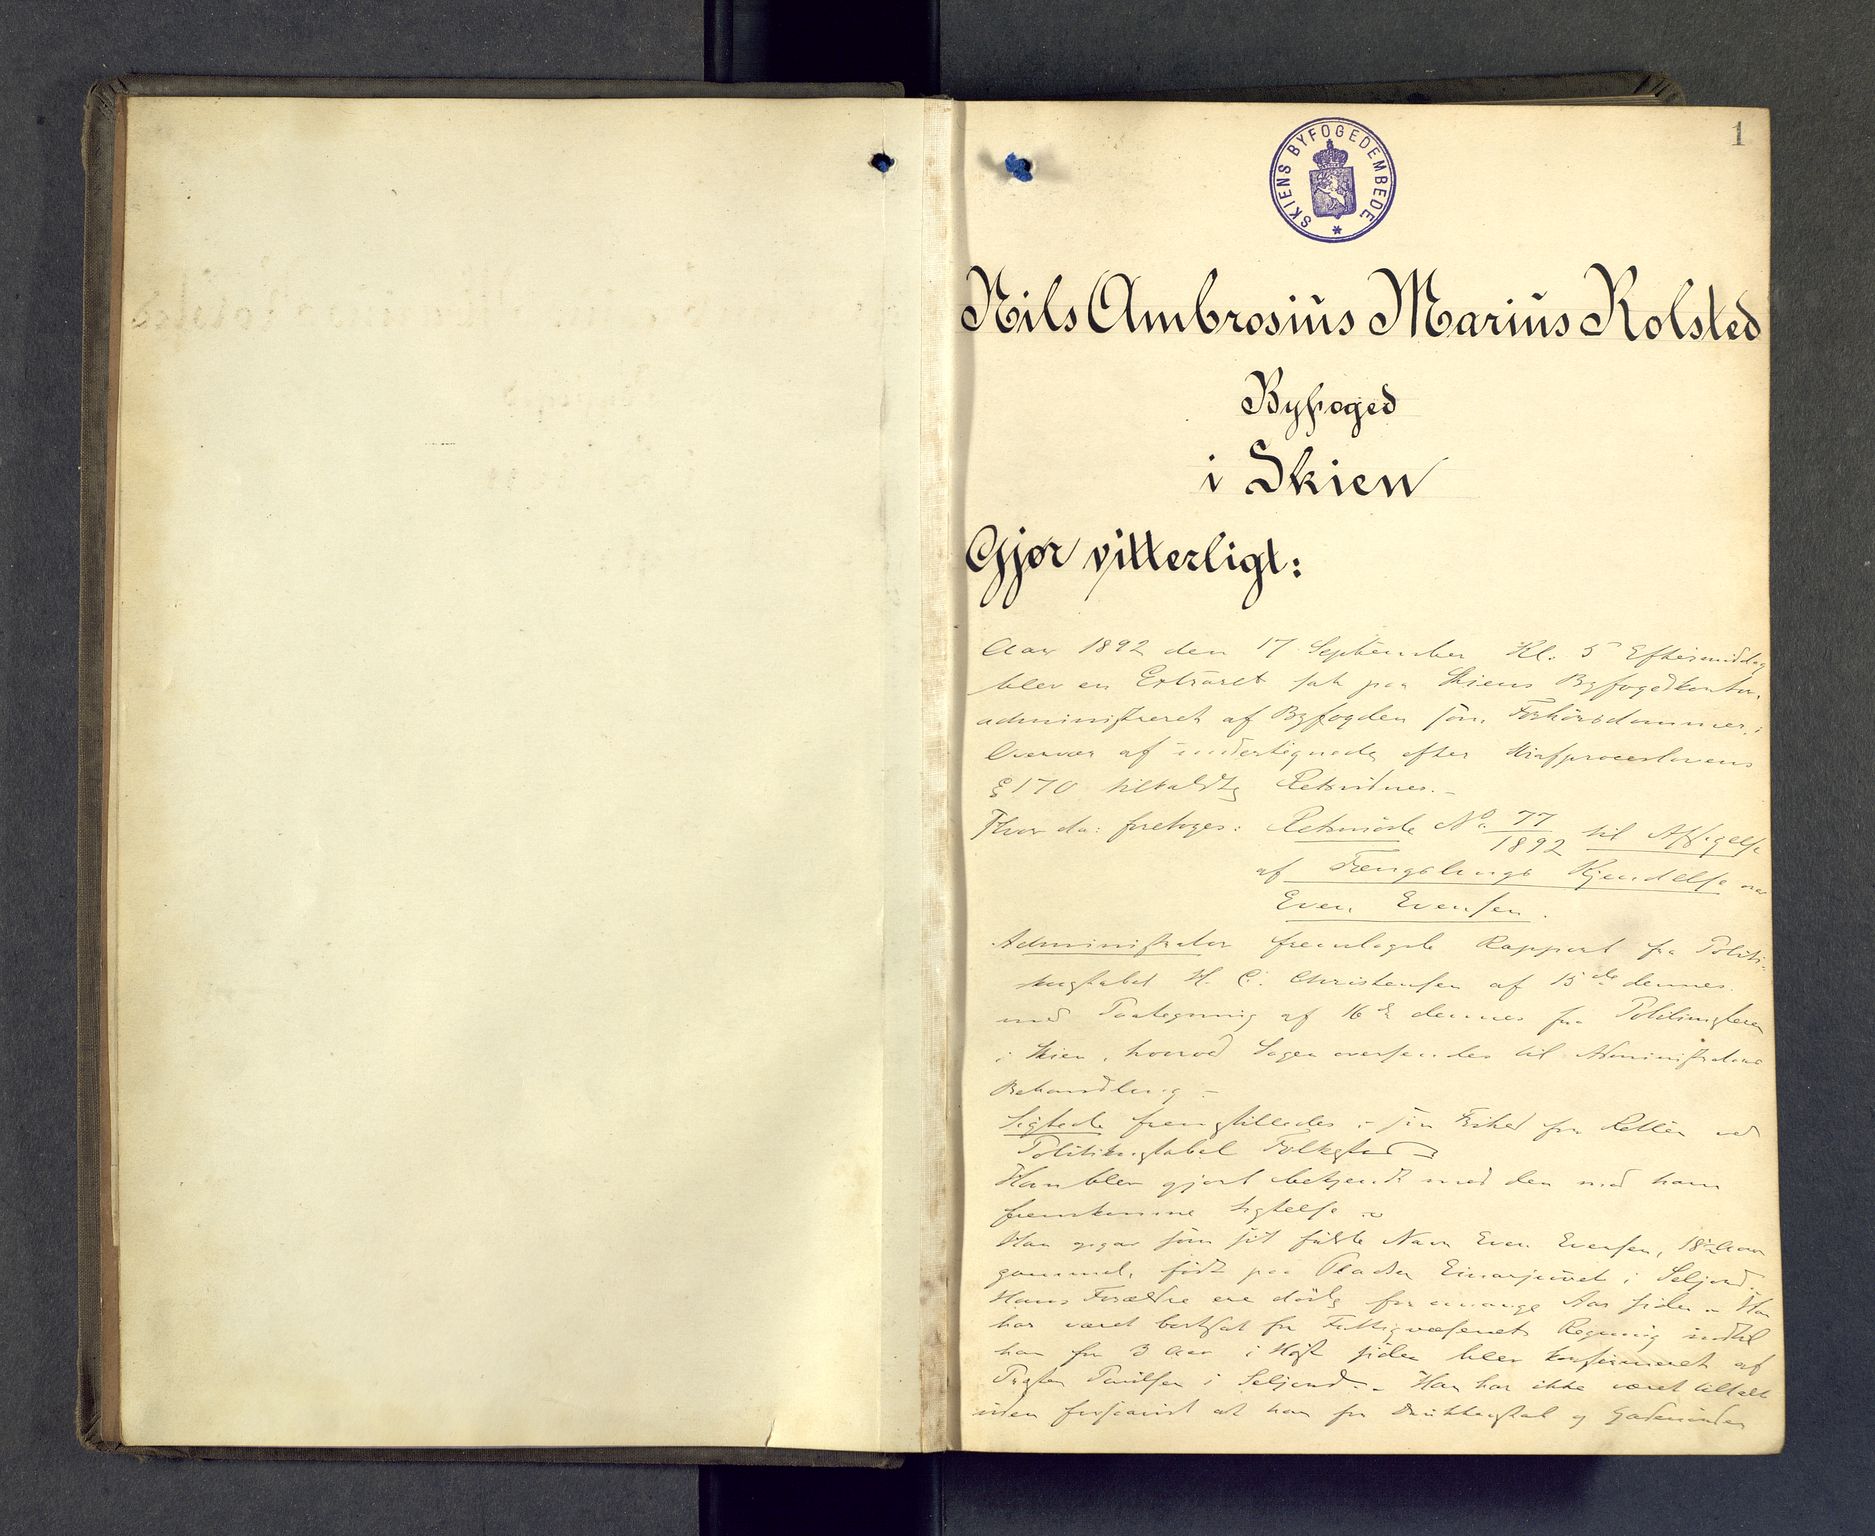 1
SKIENS BYFOGEDEMBEDE
Nils Ambrosius Marius Rolsted
Byfoged
i Skien
Gjør vitterligt:
Aar 1892 den 17 September Kl. 5 Eftermiddag
blev en Extraret sat paa Skiens Byfogedkontor,
administreret af Byfogden som Forhørsdommer, i
Overvær af undertegnede efter Strafproceslovens
§ 170 tilkaldte Retsvidner. –
Hvor da: foretoges: Retsmöde No. 77/1892 til Afsigelse
af Fængslings Kjendelse over
Even Evensen.
Administrator fremlagde Rapport fra Politi-
konstabel H. C. Christensen af 15de dennes
med Paategning af 16de dennes fra Politimesteren
i Skien, hvorved Sagen oversendes til Administrators
Behandling –
Sigtede fremstilledes i sin Frihed for Retten ved
Politikonstabel Folkestad
Han blev gjort bekjendt med den mod ham
fremkomne Sigtelse
Han opgav som sit fulde Navn Even Evensen, 18 Aar
gammel, født paa Pladsen i Seljord.
Hans Forældre ere døde for mange Aar siden – Han
har været bortsat for Fattigvæsenets Regning indtil
han for 3 Aar i Høst siden blev konfirmeret af
Presten Paulsen i Seljord. – Han har ikke været tiltalt
uden forsaavidt at han for Drukkenskab og Gadeuorden